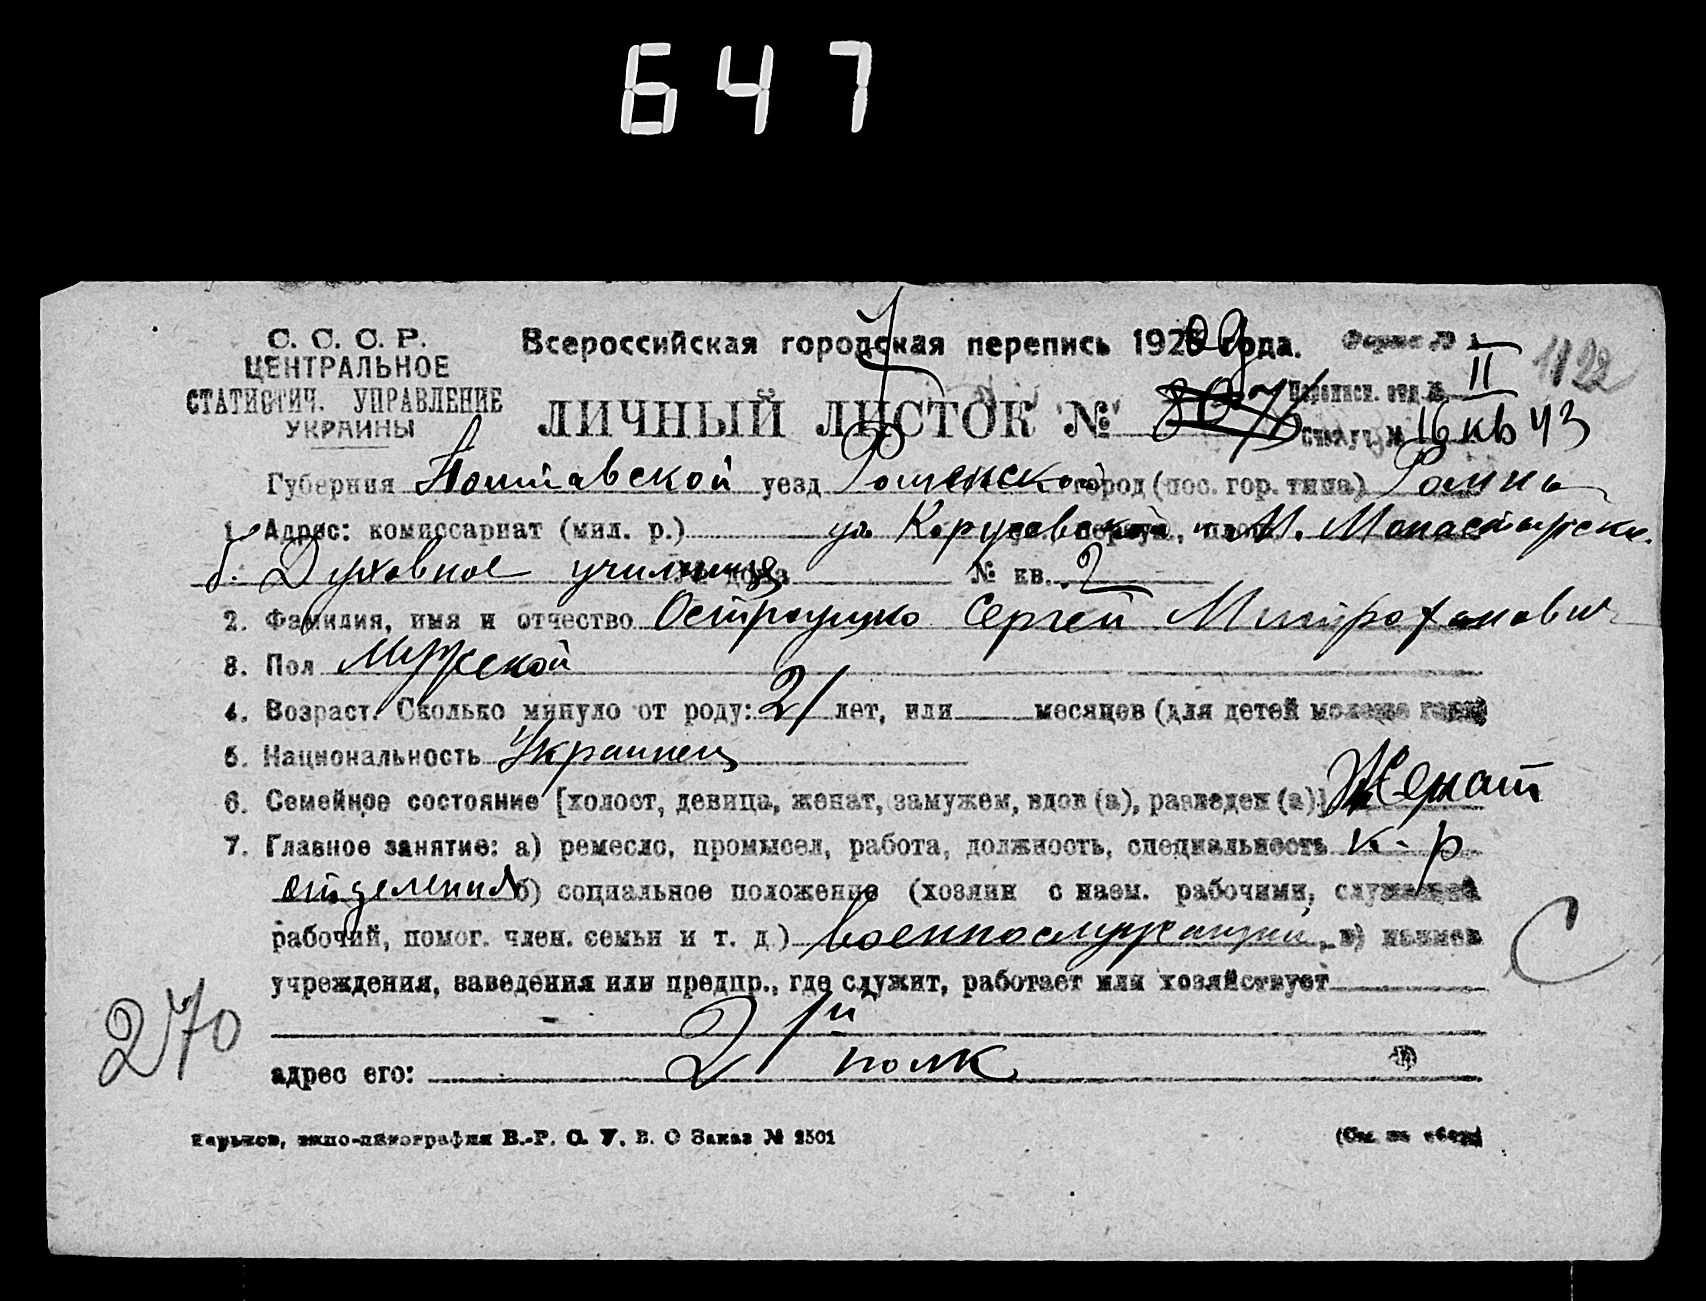 647
С. С. С. Р.
ЦЕНТРАЛЬНОЕ
СТАТИСТИЧ. УПРАВЛЕНИЕ
УКРАИНЫ
Всероссийская городская перепись 192 года.
Форма №
ЛИЧНЫЙ ЛИСТОК №
Переписн. отд. № II
1122
16 кв 43
Губерния Полтавской уезд Роменской город (пос. гор. типа) Ромны
1. Адрес: комиссариат (мил. р.) ул М. Монастырск.
б. Духовное училище № кв. 2
2. Фамилия, имя и отчество Остроушко Сергей Митрофанович
3. Пол Мужской
4. Возраст. Сколько минуло от роду: 21 лет, или месяцев (для детей моложе года)
5. Национальность Украинец
6. Семейное состояние [холост, девица, женат, замужем, вдов (а), разведен (а)] Женат
7. Главное занятие: а) ремесло, промысел, работа, должность, специальность к-р
отделения б) социальное положение (хозяин с наем. рабочими, служащий
рабочий, помог. член. семьи и т. д) военнослужащий, в) наимен
учреждения, заведения или предпр., где служит, работает или хозяйствует
270
С
адрес его: 21й полк
Харьков, В.-Р. С. У. В. О Заказ № 2501
(См. на обор)